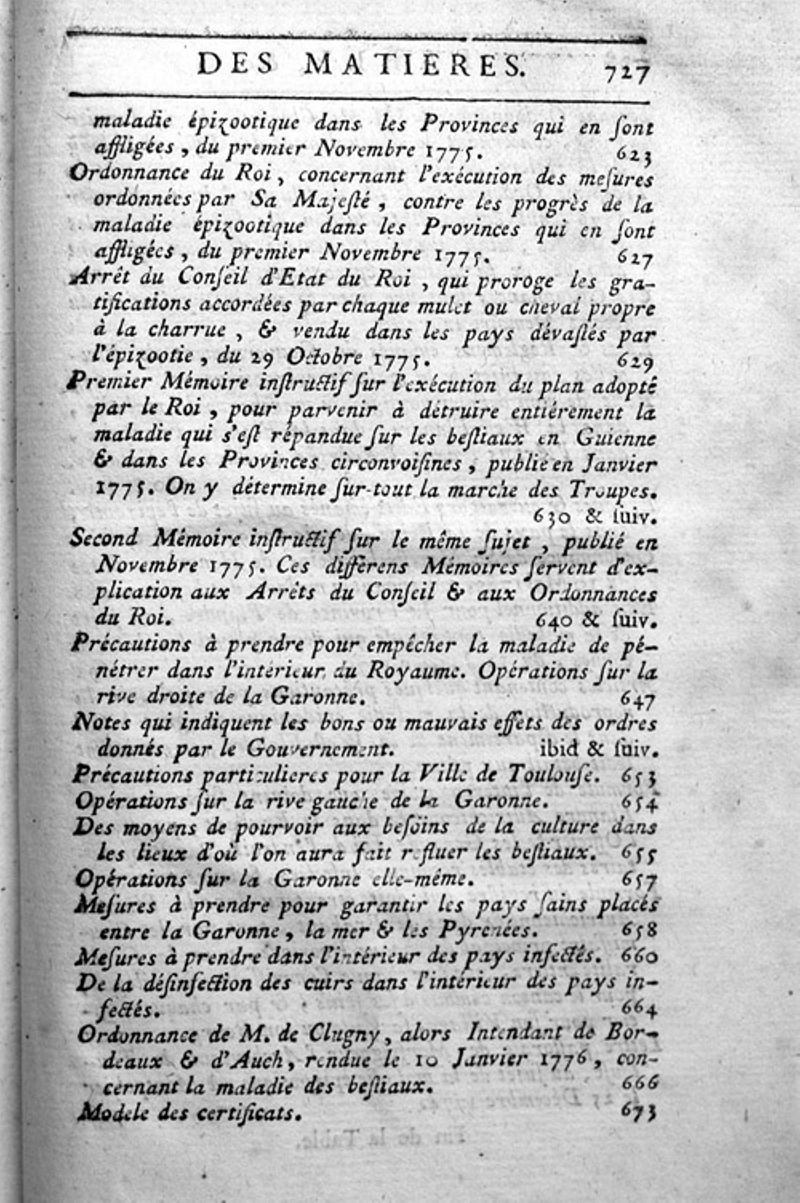 DES MATIERES. 727
maladie épizootique dans les Provinces qui en ſont
affligées, du premier Novembre 1775. 623
Ordonnance du Roi, concernant l'exécution des meſures
ordonnées par Sa Majeſté, contre les progrès de la
maladie épizootique dans les Provinces qui en ſont
affligées, du premier Novembre 1775. 627
Arrêt du Conſeil d'Etat du Roi, qui proroge les gra-
tifications accordées par chaque mulet ou cheval propre
à la charrue, & vendu dans les pays dévaſtés par
l'épizootie, du 29 Octobre 1775. 629
Premier Mémoire inſtructif ſur l'exécution du plan adopté
par le Roi, pour parvenir à détruire entiérement la
maladie qui s'eſt répandue ſur les beſtiaux en Guienne
& dans les Provinces circonvoiſines, publié en Janvier
1775. On y détermine ſur-tout la marche des Troupes.
630 & ſuiv.
Second Mémoire inſtructif ſur le même ſujet, publié en
Novembre 1775. Ces différens Mémoires ſervent d'ex-
plication aux Arrêts du Conſeil & aux Ordonnances
du Roi. 640 & ſuiv.
Précautions à prendre pour empêcher la maladie de pé-
nétrer dans l'intérieur du Royaume. Opérations ſur la
rive droite de la Garonne. 647
Notes qui indiquent les bons ou mauvais effets des ordres
donnés par le Gouvernement. ibid & ſuiv.
Précautions particulieres pour la Ville de Toulouſe. 653
Opérations ſur la rive gauche de la Garonne. 654
Des moyens de pourvoir aux beſoins de la culture dans
les lieux d'où l'on aura fait refluer les beſtiaux. 655
Opérations ſur la Garonne elle-même. 657
Meſures à prendre pour garantir les pays ſains placés
entre la Garonne, la mer & les Pyrenées. 658
Meſures à prendre dans l'intérieur des pays infectés. 660
De la déſinfection des cuirs dans l'intérieur des pays in-
fectés. 664
Ordonnance de M. de Clugny, alors Intendant de Bor-
deaux & d'Auch, rendue le 10 Janvier 1776, con-
cernant la maladie des beſtiaux. 666
Modele des certificats. 673